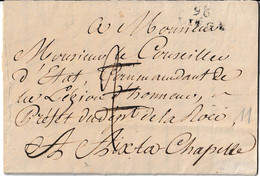 A Monsieur
96
Monsieur le Conseiller
d'Etat Commandant de
la Légion d'honneur
Préfet du dept de la Roër
A Aix la Chapelle
11